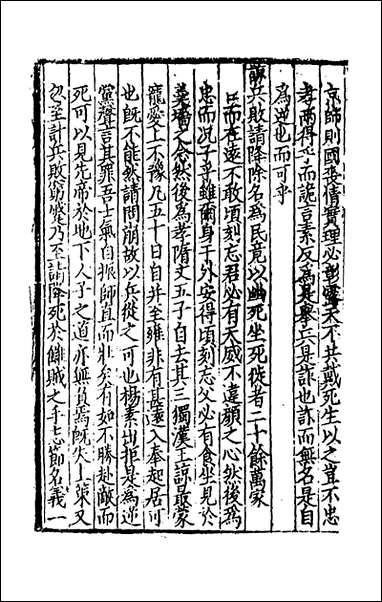 京師則國喪情實理必彰露天不共戴死生以之豈不忠
孝兩得乎而詭言素反爲是舉兵是詐也詐而無名是自
爲逆也而可乎
諒兵敗請降除名爲民竟以幽死坐死徙者二十餘萬家
臣而在遠不敢頃刻忘君必有天威不違顏之心然後爲
忠而况子乎雖爾身于外安得頃刻忘父必有食坐見於
羹墻之念然後爲孝隋文五子自去其三獨漢王諒最蒙
寵愛上不豫几五十日自并至雍非有甚遠入奉起居可
也旣不能然請問崩故以兵從之可也楊素出拒是爲逆
黨聲言其罪吾士氣自振師直而壯矣有如不勝赴敵而
死可以見先帝於地下人子之道亦無負焉旣失上策又
忽至計兵敗窮蹙乃至請降死於讎賊之手志節名義一